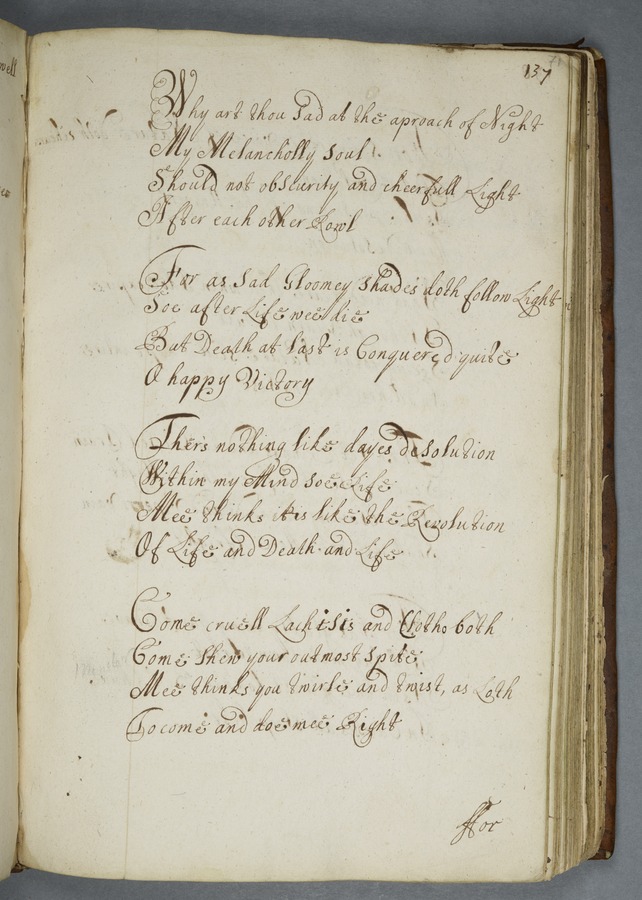 well
137
Why art thou sad at the aproach of Night
My Melancholly soul
Should not obscurity and cheerfull Light
After each other Rowl
For as sad Gloomey shades doth follow Light
Soe after Life wee die
But Death at last is Conquered quite
O happy Victory
Thers nothing like dayes desolution
Within my Mind soe Rife
Mee thinks itis like the Revolution
Of Life and Death and Life
Come cruell Lachisis and Clotho both
Come shew your outmost spite
Mee thinks you twirle and twist, as Loth
To come and doe mee Right
ffor